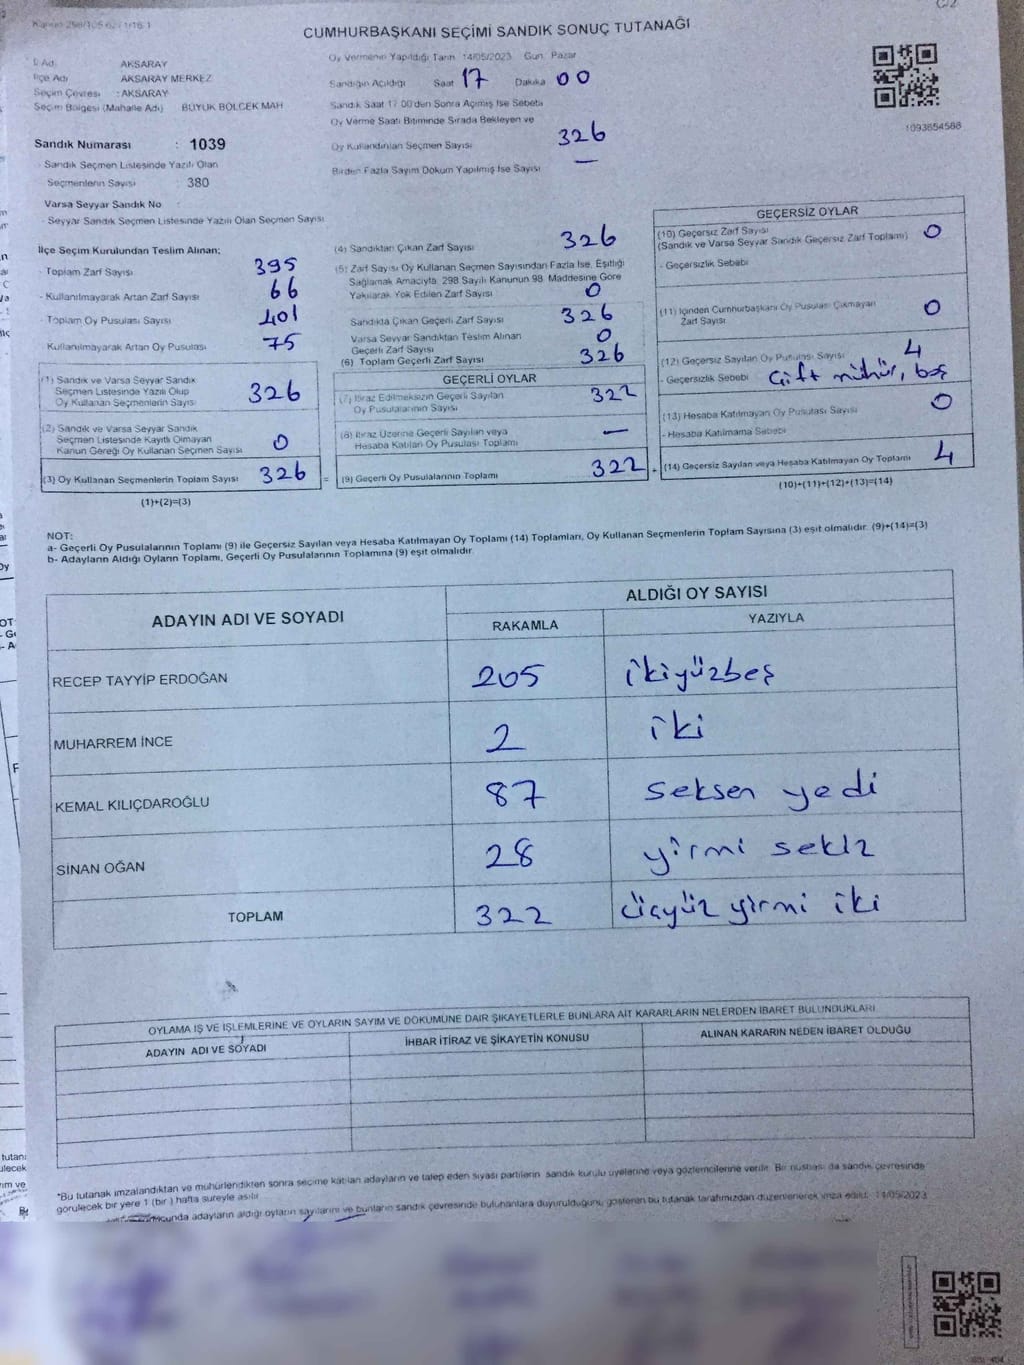 CUMHURBAŞKANI SEÇİMİ SANDIK SONUÇ TUTANAĞI
İl Adı AKSARAY
İlçe Adı AKSARAY MERKEZ
Seçim Çevresi : AKSARAY
Seçim Bölgesi (Mahalle Adı) BÜYÜK BÖLCEK MAH
Sandık Numarası : 1039
- Sandık Seçmen Listesinde Yazılı Olan
Seçmenlerin Sayısı : 380
Varsa Seyyar Sandık No
- Seyyar Sandık Seçmen Listesinde Yazılı Olan Seçmen Sayısı
Oy Vermenin Yapıldığı Tarih 14/05/2023 Gün: Pazar
Sandığın Açıldığı Saat 17 Dakika 00
Sandık Saat 17:00'den Sonra Açılmış İse Sebebi
Oy Verme Saati Bitiminde Sırada Bekleyen ve
Oy Kullandırılan Seçmen Sayısı 326
Birden Fazla Sayım Döküm Yapılmış İse Sayısı —
1093854568
İlçe Seçim Kurulundan Teslim Alınan;
- Toplam Zarf Sayısı 395
- Kullanılmayarak Artan Zarf Sayısı 66
- Toplam Oy Pusulası Sayısı 401
Kullanılmayarak Artan Oy Pusulası 75
(1) Sandık ve Varsa Seyyar Sandık
Seçmen Listesinde Yazılı Olup
Oy Kullanan Seçmenlerin Sayısı 326
(2) Sandık ve Varsa Seyyar Sandık
Seçmen Listesinde Kayıtlı Olmayan
Kanun Gereği Oy Kullanan Seçmen Sayısı 0
(3) Oy Kullanan Seçmenlerin Toplam Sayısı 326
(1)+(2)=(3)
(4) Sandıktan Çıkan Zarf Sayısı 326
(5) Zarf Sayısı Oy Kullanan Seçmen Sayısından Fazla İse, Eşitliği
Sağlamak Amacıyla 298 Sayılı Kanunun 98. Maddesine Göre
Yakılarak Yok Edilen Zarf Sayısı 0
Sandıkta Çıkan Geçerli Zarf Sayısı 326
Varsa Seyyar Sandıktan Teslim Alınan
Geçerli Zarf Sayısı 0
(6) Toplam Geçerli Zarf Sayısı 326
GEÇERLİ OYLAR
(7) İtiraz Edilmeksizin Geçerli Sayılan
Oy Pusulalarının Sayısı 322
(8) İtiraz Üzerine Geçerli Sayılan veya
Hesaba Katılan Oy Pusulası Toplamı —
= (9) Geçerli Oy Pusulalarının Toplamı 322 +
GEÇERSİZ OYLAR
(10) Geçersiz Zarf Sayısı
(Sandık ve Varsa Seyyar Sandık Geçersiz Zarf Toplamı) 0
- Geçersizlik Sebebi
(11) İçinden Cumhurbaşkanı Oy Pusulası Çıkmayan
Zarf Sayısı 0
(12) Geçersiz Sayılan Oy Pusulası Sayısı 4
- Geçersizlik Sebebi Çift mühür, boş
(13) Hesaba Katılmayan Oy Pusulası Sayısı 0
- Hesaba Katılmama Sebebi
(14) Geçersiz Sayılan veya Hesaba Katılmayan Oy Toplamı 4
(10)+(11)+(12)+(13)=(14)
NOT:
a- Geçerli Oy Pusulalarının Toplamı (9) ile Geçersiz Sayılan veya Hesaba Katılmayan Oy Toplamı (14) Toplamları, Oy Kullanan Seçmenlerin Toplam Sayısına (3) eşit olmalıdır. (9)+(14)=(3)
b- Adayların Aldığı Oyların Toplamı, Geçerli Oy Pusulalarının Toplamına (9) eşit olmalıdır.
ADAYIN ADI VE SOYADI ALDIĞI OY SAYISI
RAKAMLA YAZIYLA
RECEP TAYYİP ERDOĞAN 205 ikiyüzbeş
MUHARREM İNCE 2 iki
KEMAL KILIÇDAROĞLU 87 seksen yedi
SİNAN OĞAN 28 yirmi sekiz
TOPLAM 322 üçyüz yirmi iki
OYLAMA İŞ VE İŞLEMLERİNE VE OYLARIN SAYIM VE DÖKÜMÜNE DAİR ŞİKAYETLERLE BUNLARA AİT KARARLARIN NELERDEN İBARET BULUNDUKLARI
ADAYIN ADI VE SOYADI İHBAR İTİRAZ VE ŞİKAYETİN KONUSU ALINAN KARARIN NEDEN İBARET OLDUĞU
*Bu tutanak imzalandıktan ve mühürlendikten sonra seçime katılan adayların ve talep eden siyasi partilerin sandık kurulu üyelerine veya gözlemcilerine verilir. Bir nüshası da sandık çevresinde
görülecek bir yere 1 (bir) hafta süreyle asılır.
adayların aldığı oyların sayılarını ve bunların sandık çevresinde bulunanlara duyurulduğunu gösteren bu tutanak tarafımızdan düzenlenerek imza edildi. 14/05/2023